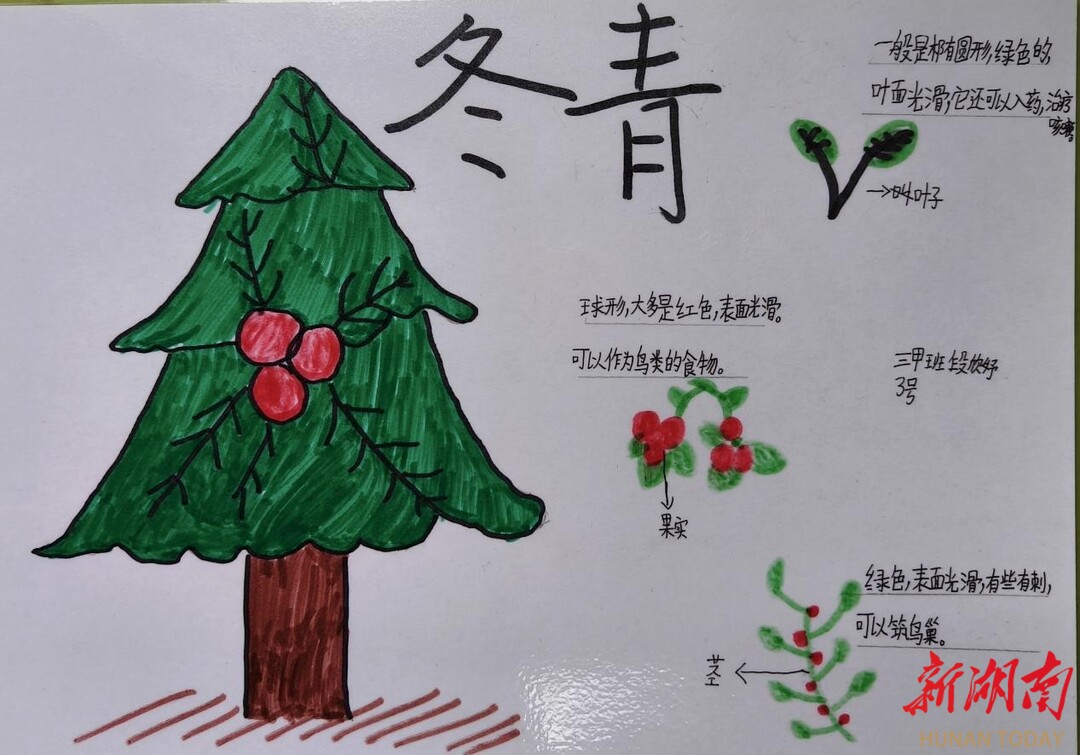 冬青
一般是椭有圆形,绿色的,
叶面光滑,它还可以入药,治疗
咳嗽。
叫叶子
球形,大多是红色,表面光滑。
可以作为鸟类的食物。
三甲班 段欣妤
3号
果实
绿色,表面光滑,有些有刺,
可以筑鸟巢。
茎
新湖南
HUNAN TODAY